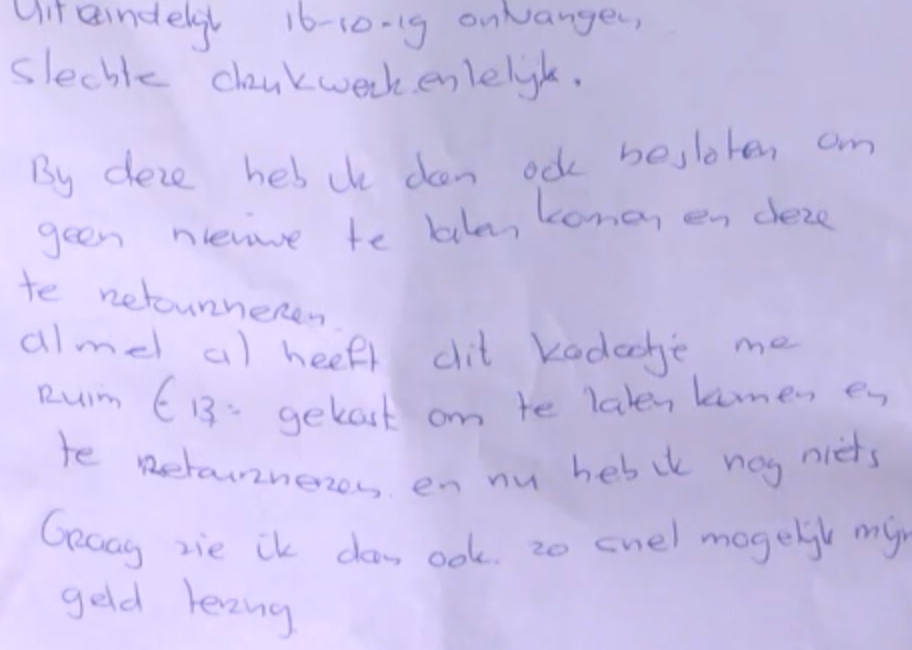 Uiteindelijk 16-10-19 ontvangen,
Slechte drukwerk en lelijk.
By deze heb ik dan ook besloten om
geen nieuwe te laten komen en deze
te retourneren.
al met al heeft dit kadootje me
Ruim € 13,- gekost om te laten komen en
te retourneren en nu heb ik nog niets
Graag zie ik dan ook zo snel mogelijk mijn
geld terug